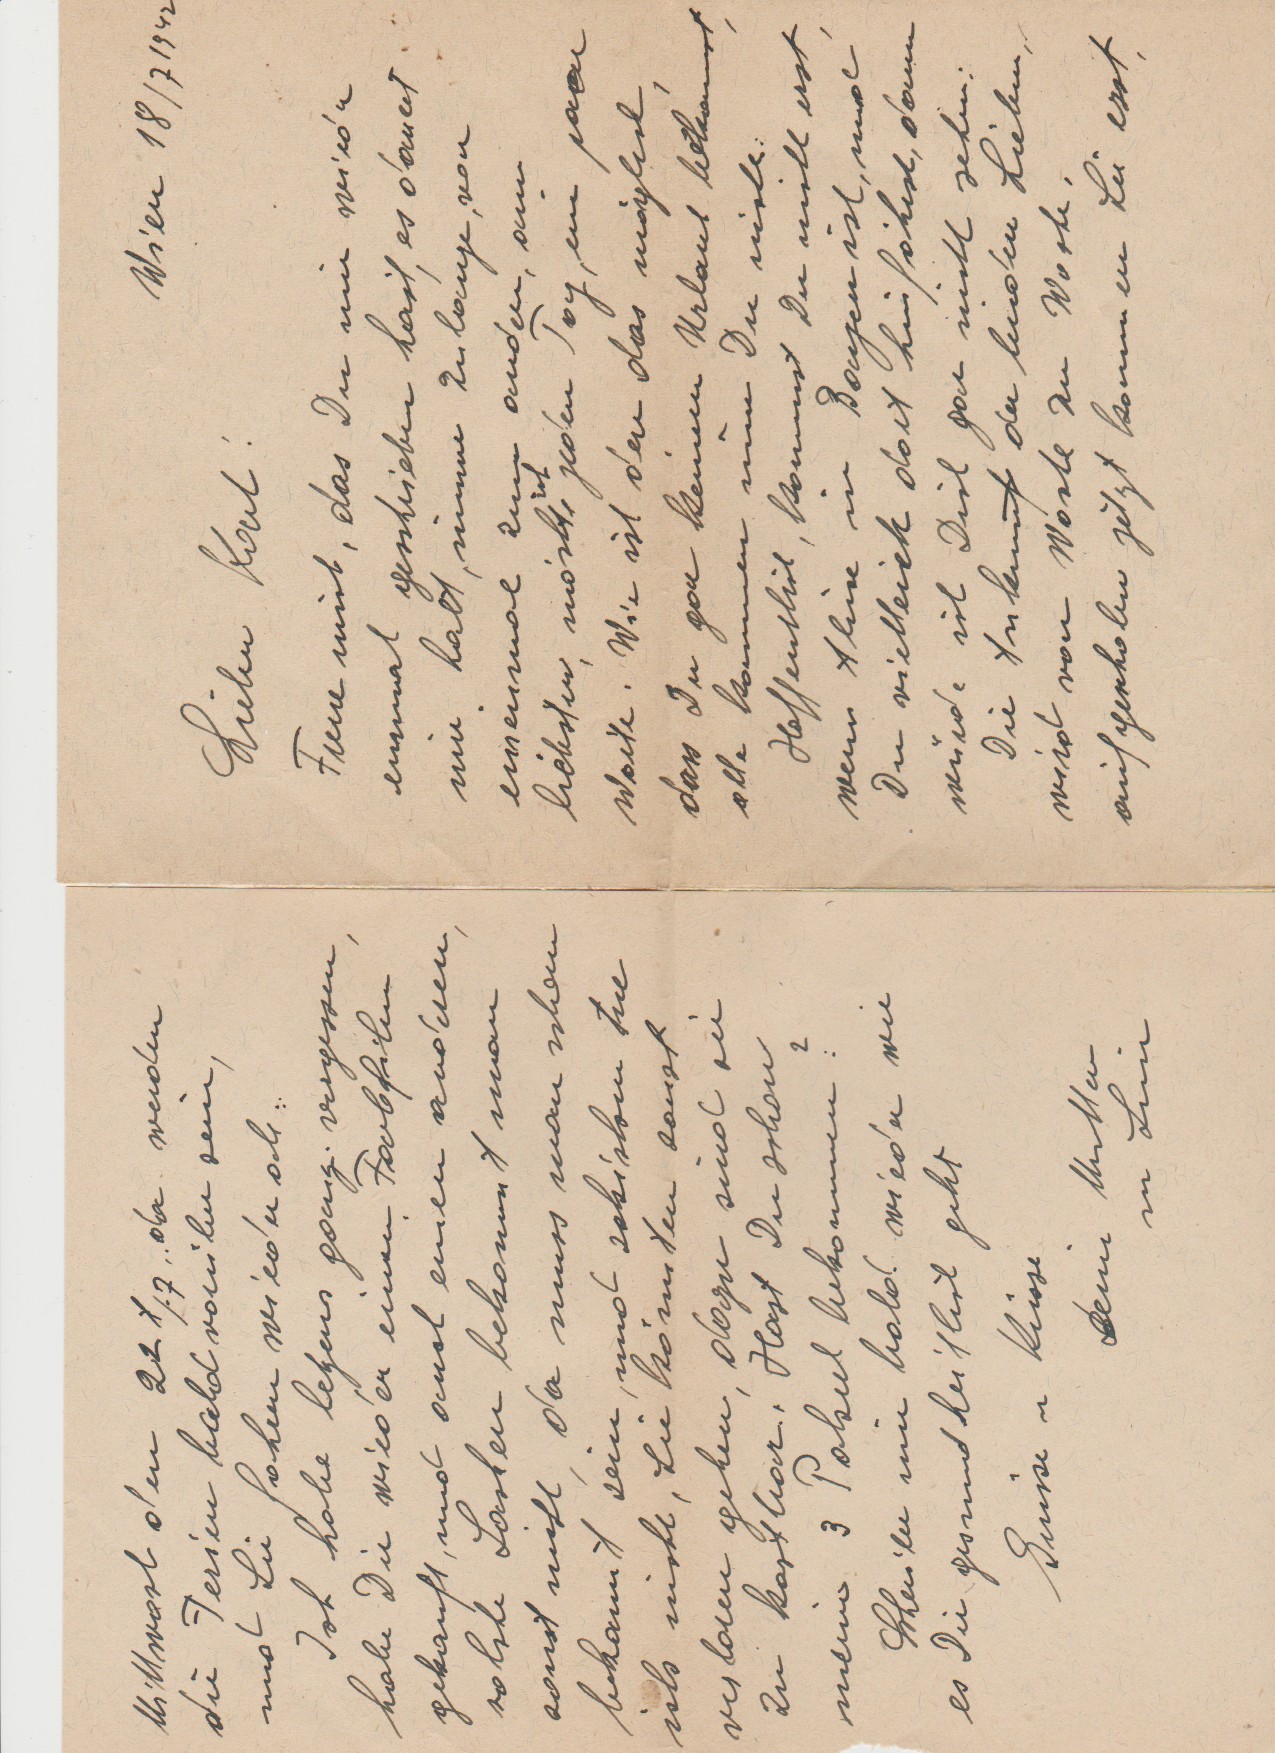 Wien 18/7 1942
Lieber Karl!
Freue mich, das Du mir wieder
einmal geschrieben hast, es dauert
mir halt, immer zu lange, von
eineinmal zum andern, am
liebsten, möcht ich jeden Tag, ein paar
Worte. Wie ist den das möglich,
dass Du gar keinen Urlaub bekommst,
alle kommen nur Du nicht.
Hoffentlich, kommst Du nicht erst,
wenn Aline in Bangen ist, und
Du vielleich dort hin fährst, dann
würde ich Dich gar nicht sehen.
Die Ankunft der beiden Lieben,
wird von Woche zu Woche,
aufgeschoben jetzt kommen Sie erst,
Mittwoch den 22t/7. da werden
die Ferien bald vorüber sein,
und Sie fahren wieder ab.
Ich habe bezeus ganz vergessen,
habe Dir wieder einen Farbfilm
gekauft, und auch einen andern,
solche Sachen bekommt man
sonst nicht, da muss man schon
bekannt sein, und schicken tue
ichs nicht, Sie könnten sonst
verloren gehen, dazu sind sie
zu kostbar. Hast Du schon
meine 3 Packel bekommen?
Schreibe mir bald wieder wie
es Dir gesundheitlich geht
Grüsse u Küsse
Deine Mutter
u Luise